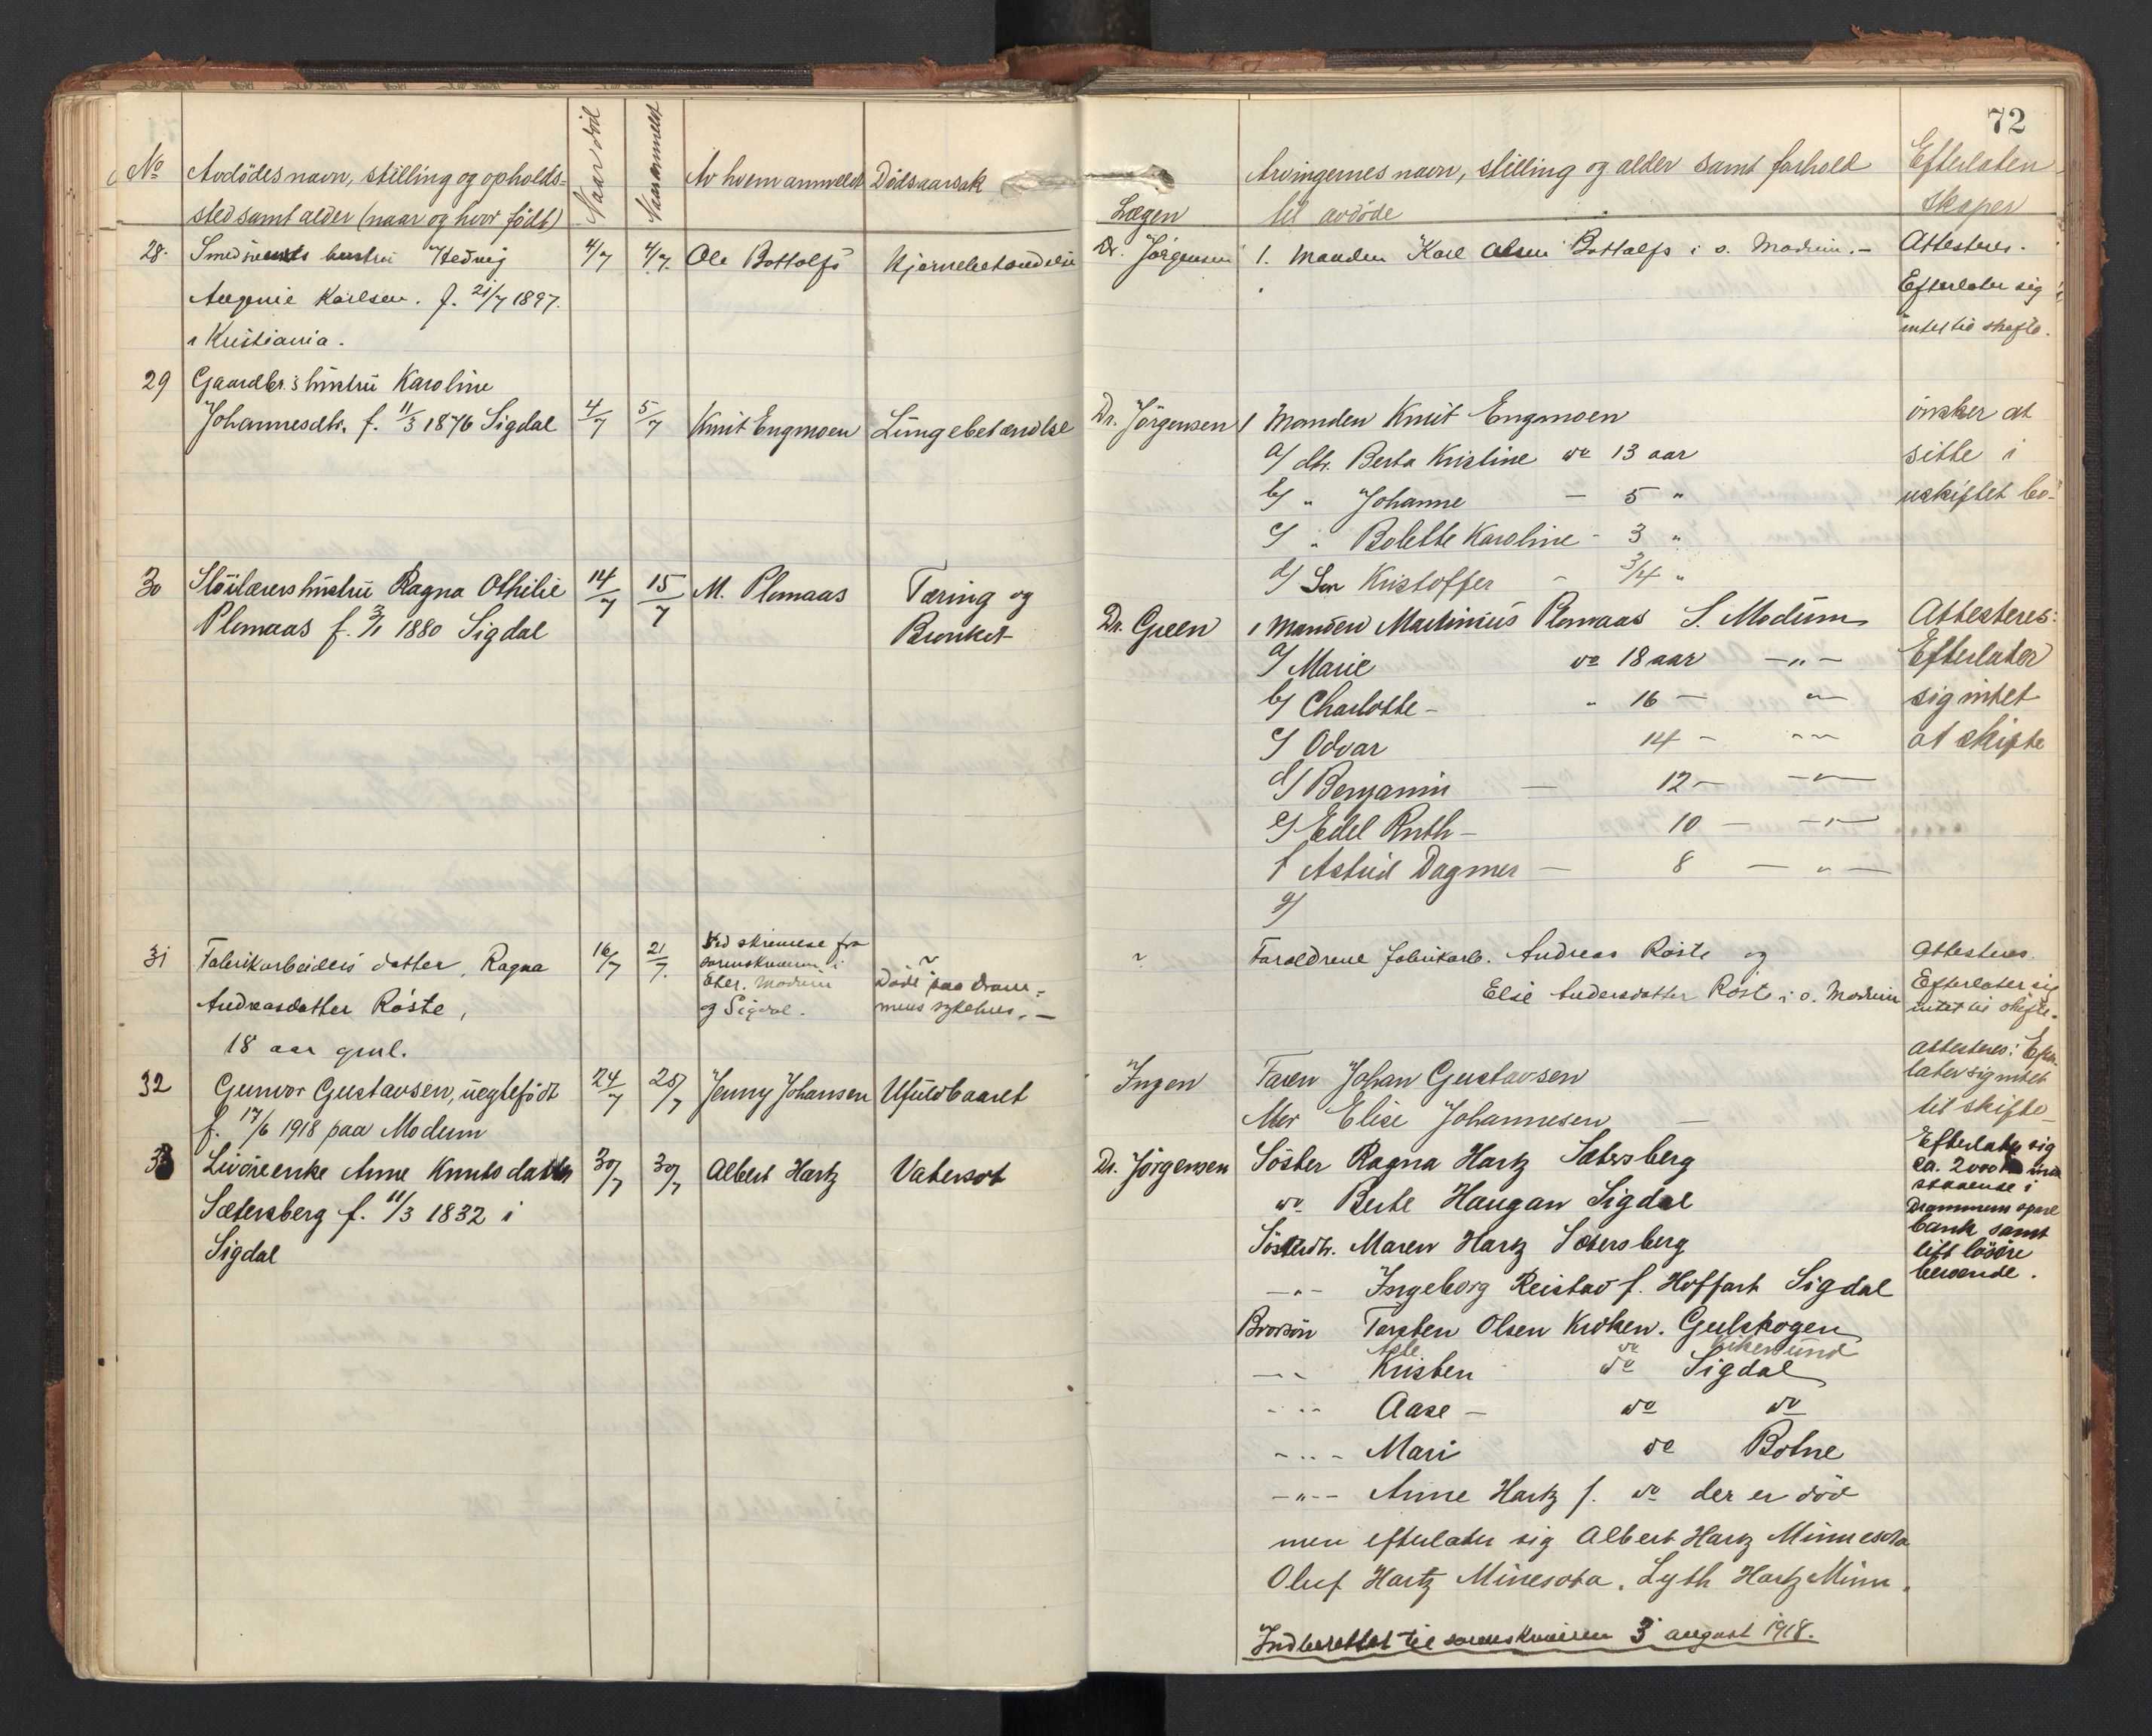 72
No
Avdödes navn, stilling og opholds-
sted samt alder (naar og hvor født)
Naar död
Naar anmeldt
Av hvem anmeldt
Dödsaarsak
Lægen
Arvingernes navn, stilling og alder samt forhold
til avdöde
Efterlaten
skaper
28. Smedsvends hustru Hedvig 4/7 4/7. Ole Bottolfs Hjernebetændelse Dr. Jörgensen 1. Manden Karl Olsen Bottolfs i ö. Modum. - Attesteres.
Augenie Karlsen. f. 21/7 1897. Efterlater sig
i Kristiania. intet til skifte.
29 Gaardbr.s hustru Karoline
Johannesdtr. f. 11/3 1876 Sigdal 4/7 5/7 Knut Engmoen Lungebetændlse Dr. Jörgensen 1 Manden Knut Engmoen önsker at
a/ dtr. Berta Kristine do 13 aar sitte i
b/ " Johanne - 5 " uskiftet bo-
c/ " Bolette Karoline - 3 "
d/ Sön Kristoffer - 3/4 "
30 Slöilærers hustru Ragna Othilie 14/7 15/7 M. Plomaas Tæring og
Plomaas f. 3/1 1880 Sigdal Bronkit Dr. Green 1 Manden Martinius Plomaas S. Modum Attesteres:
a/ Marie do 18 aar -"- Efterlater
b/ Charlotte - " 16 - "- sig intet
c/ Odvar 14 - "- at skifte
d/ Benjamin - 12 - -"-
e/ Edel Ruth - 10 - -"-
f Astrid Dagmar - 8 - " -
g/
31 Fabrikarbeiders datter, Ragna 16/7 21/7. Ved skrivelse fra
sorenskriveren i
Eker, Modum
og Sigdal. ~
Död paa Dram-
mens sykehus. - ~ Foreldrene fabrikarb. Andreas Röste og Attesteres.
Andreasdatter Röste, Else Andersdatter Röste i ö. Modum Efterlater sig
intet til skifte.
18 aar gml.
32 Gunvor Gustavsen, uegtefödt 24/7 25/7 Jenny Johansen Ufuldbaaret Ingen Faren Johan Gustavsen Attesteres: Efter-
later sig intet
f. 17/6 1918 paa Modum Mor Elise Johannesen - til skifte
33 Livöreenke Anne Knutsdatter 30/7 30/7 Albert Hartz Vatersot Dr. Jörgensen Söster Ragna Hartz Sætersberg Efterlater sig
ca. 2000 kr inde
Sætersberg f. 11/3 1832 i do Berte Haugan Sigdal staaende i
Drammens spare
Sigdal Sösterdtr. Maren Hartz Sætersberg bank samt
litt lösöre
-"- Ingeborg Reistad f. Hoffart Sigdal beroende.
Brorsön Torsten Olsen Kroken. Gulskogen
Asle do Vikersund
-"- Kristen do Sigdal
-"- Aase - do do
-"- Mari do Botne
-"- Anne Hartz f. do der er död
men efterlater sig Albert Hartz Minnesota
Oluf Hartz Minesota. Lyth Hartz Minn.
Indberettet til sorenskriveren 3 august 1918.